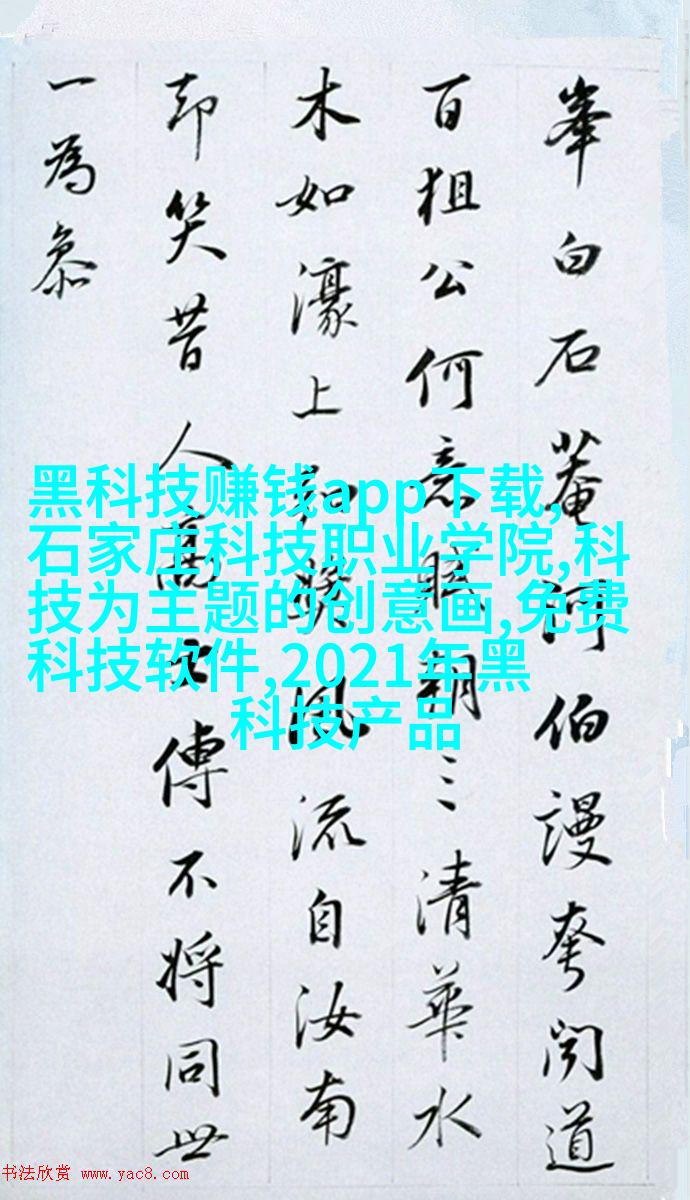 峯白石菴河伯謾夸闻道
百狙公何意賦朝三清華水
木如濠上知樂风流自汝南
却笑昔人高士傳不将同世
一為叅
黑科技赚钱app下载,
石家庄科技职业学院,科
技为主题的创意画,免费
科技软件,2021年黑
科技产品
书法欣赏 www.yac8.com